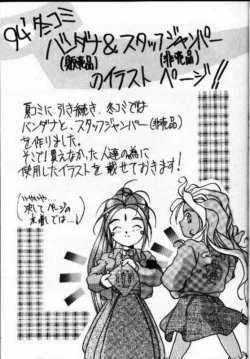 94'冬コミ
バンダナ&スタッフジャンパー
(販売品)
(非売品)
のイラスト ページ!!
夏コミに引き続き、冬コミでは
バンダナと、スタッフジャンパー(非売品)
を作りました。
そこで!買えなかった人達の為に
使用したイラストを載せておきます!
決して ページの
水増しでは…